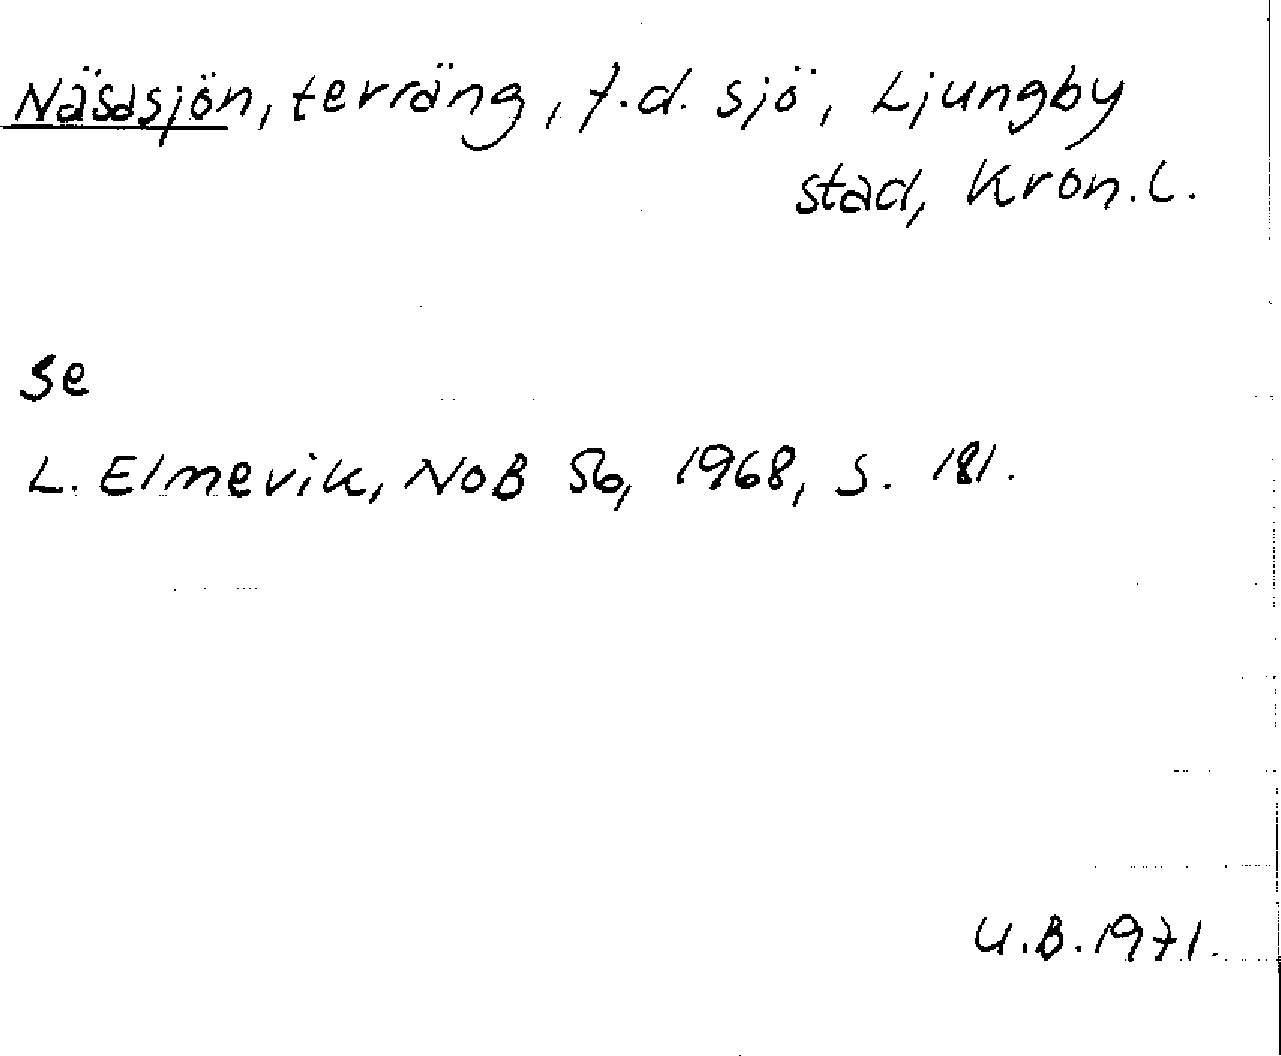 Näsasjön, terräng, f.d. sjö, Ljungby
stad, Kron.l.
se
L. Elmevik, NoB 56, 1968, s. 181.
U.B. 1971.